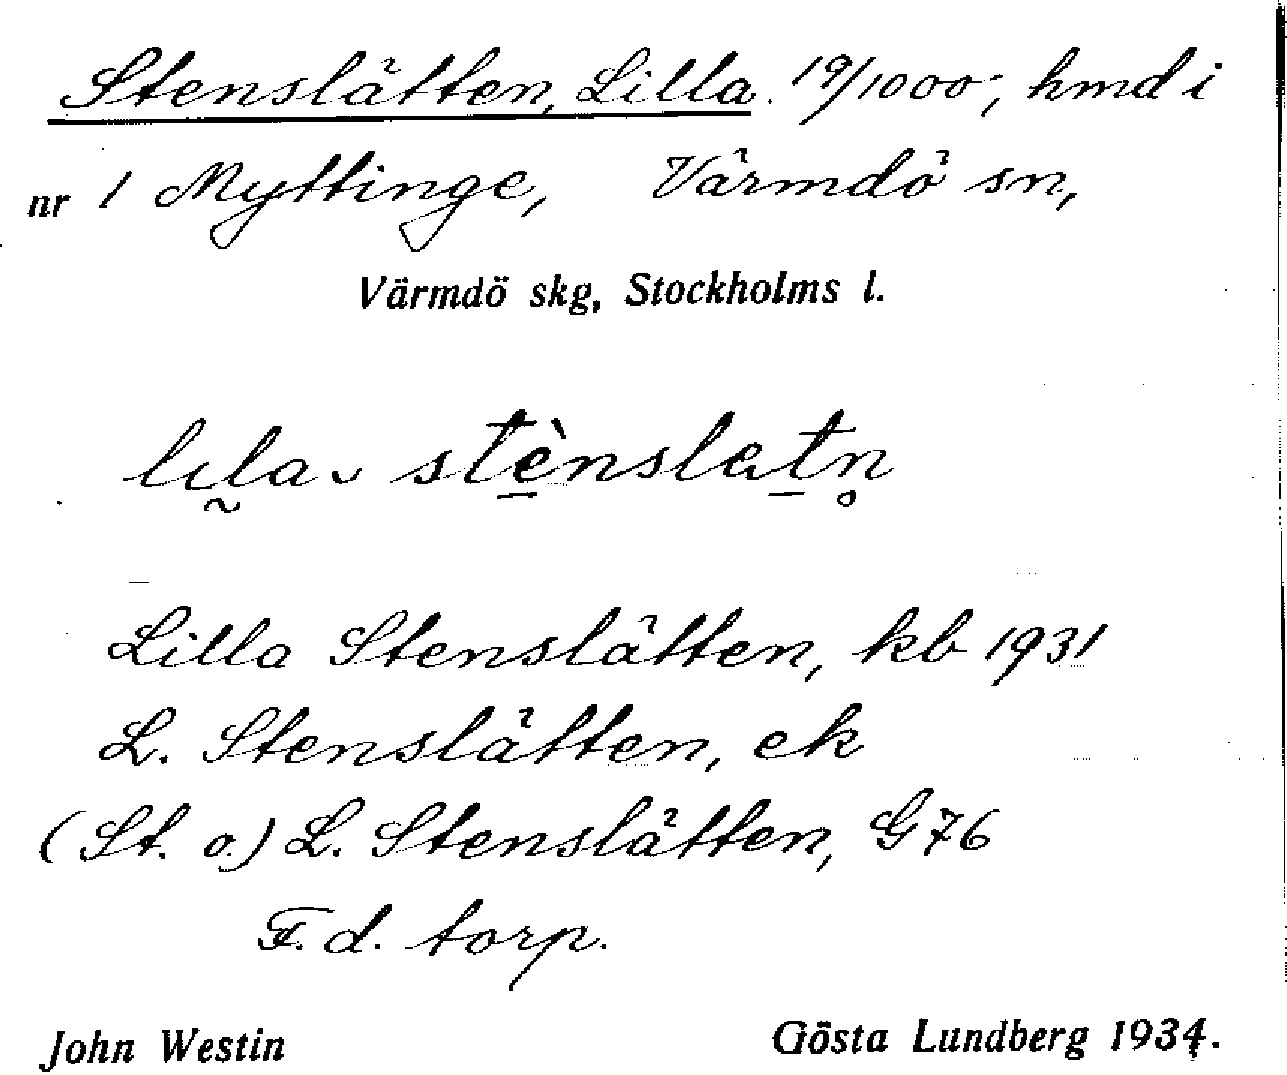 Stenslätten, Lilla. 19/1000; hmd i
nr 1 Myttinge, Värmdö sn,
Värmdö skg, Stockholms l.
lɩla stènslatn̥
Lilla Stenslätten, kb 1931
L. Stenslätten, ek
(St. o.) L. Stenslätten, G76
F. d. torp.
John Westin Gösta Lundberg 1934.